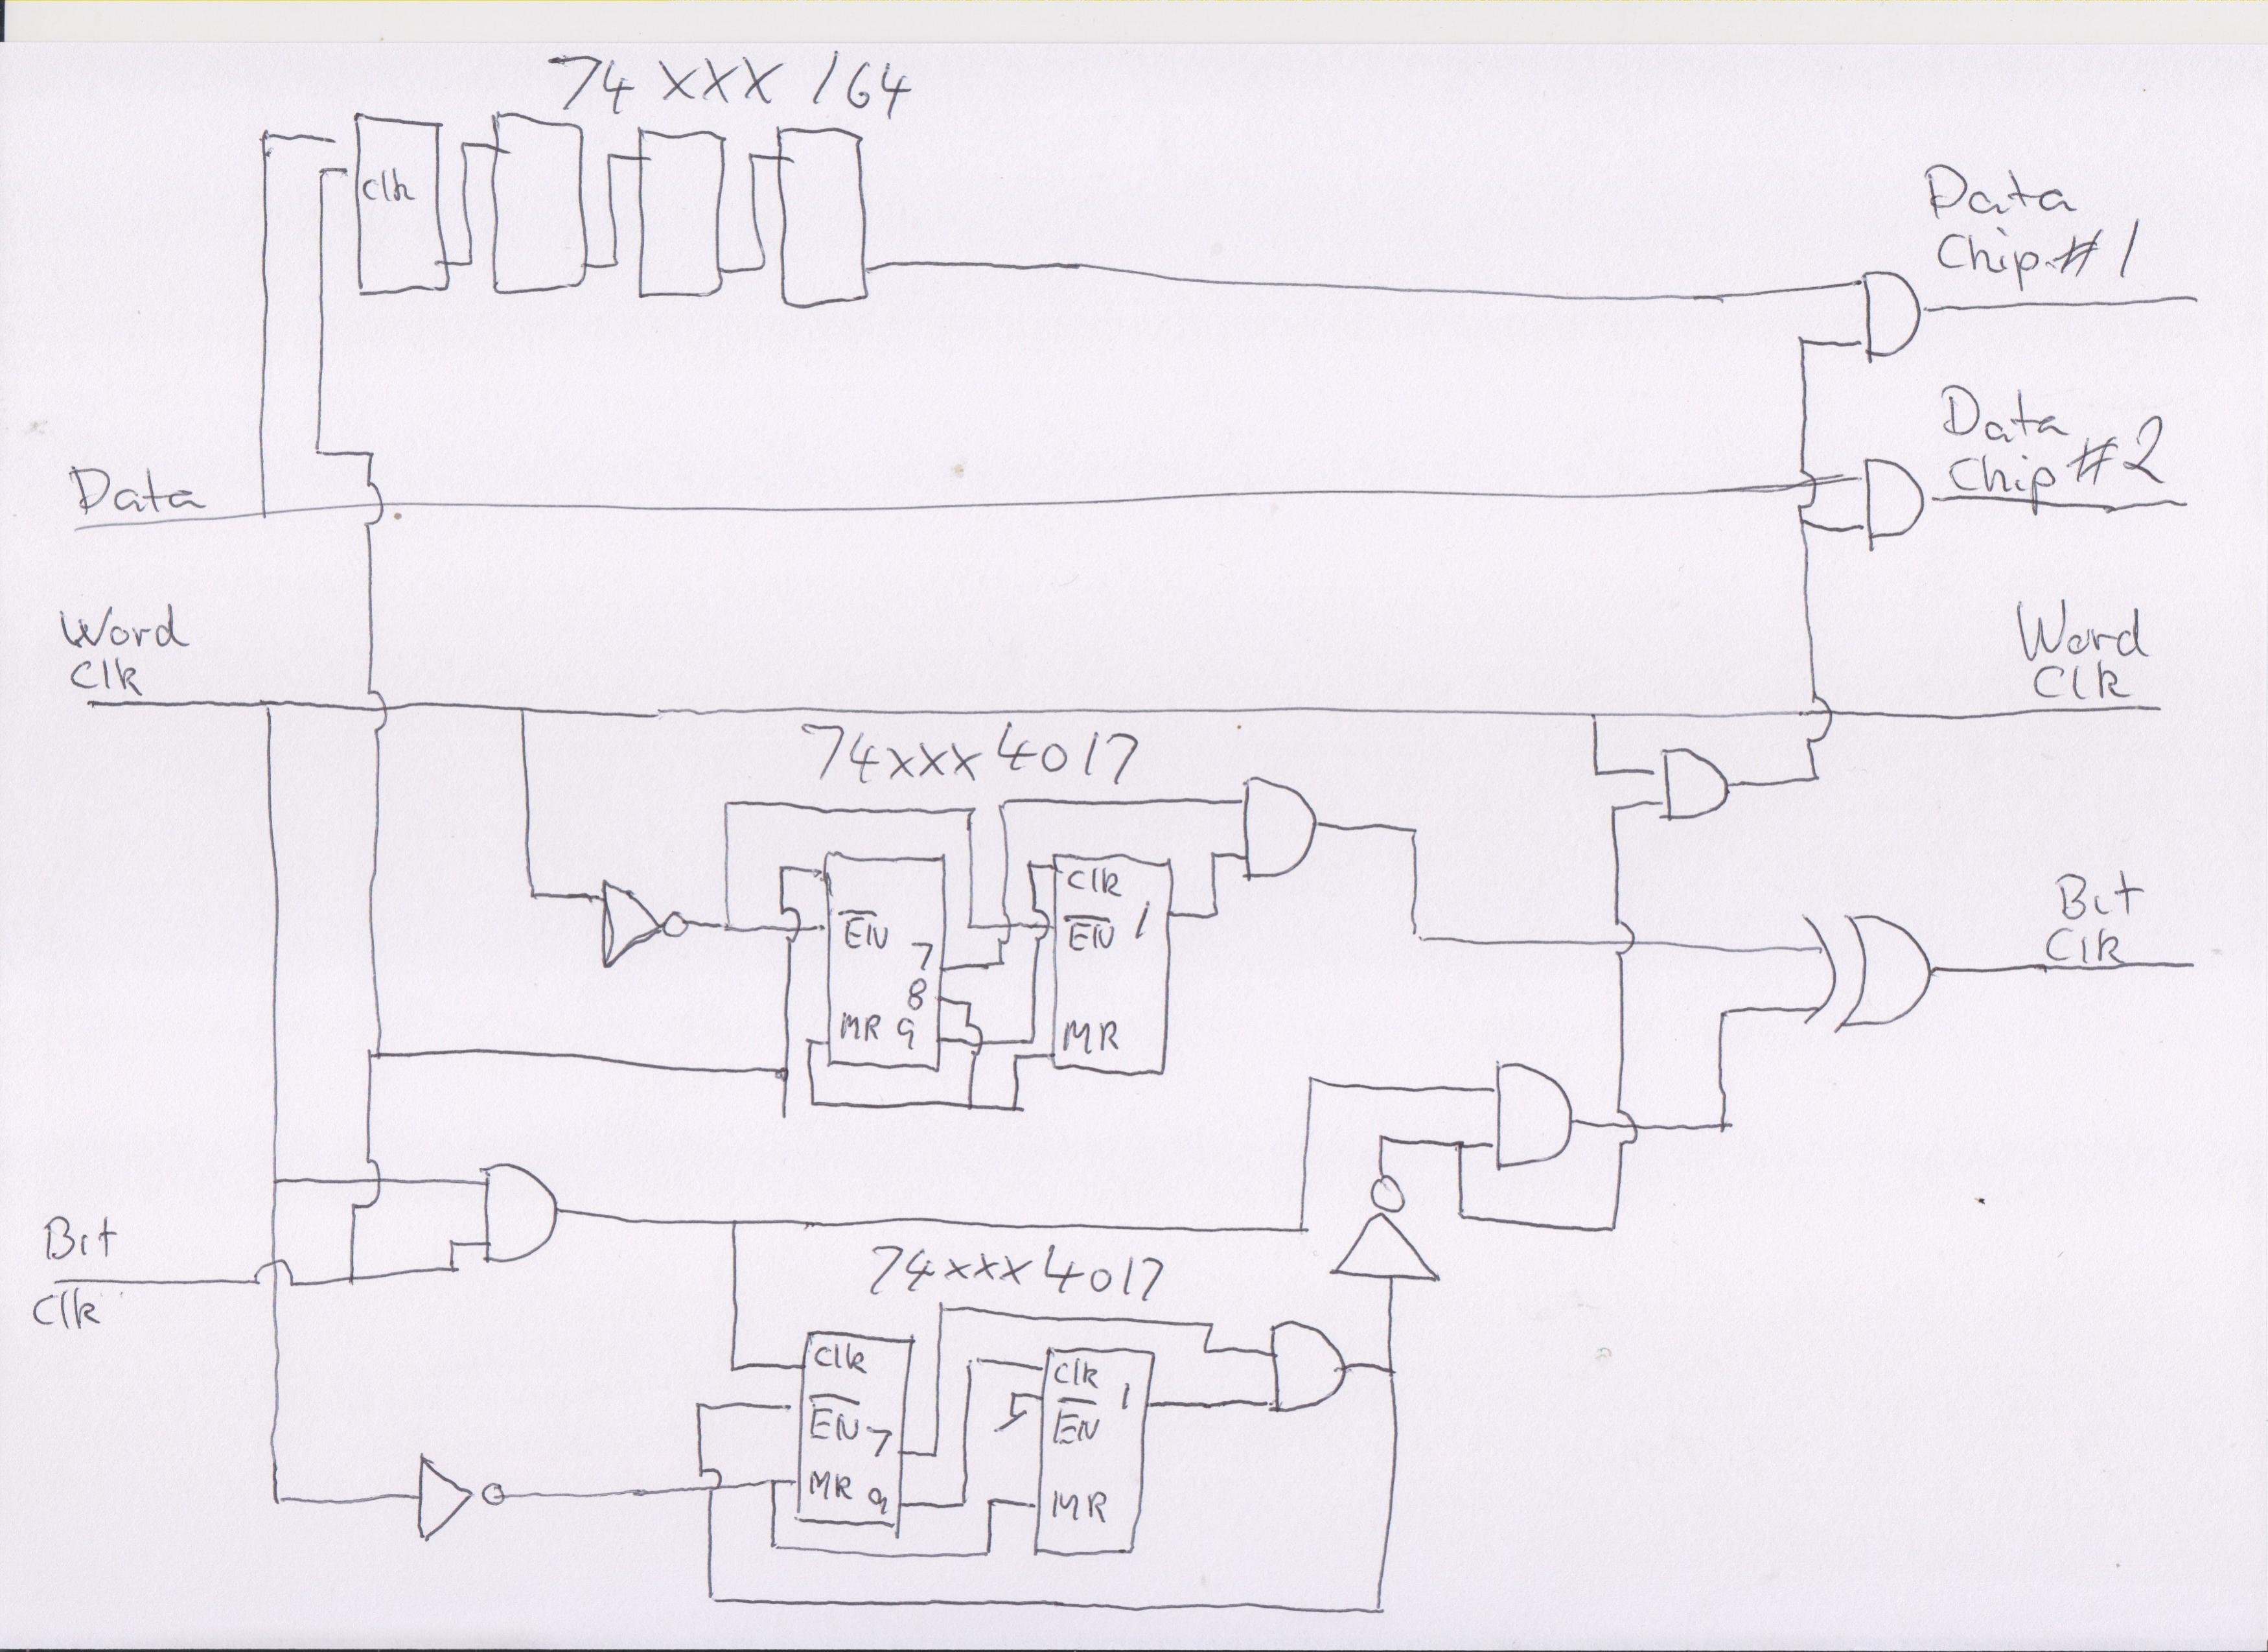 74XXX164
Clk
Data
Chip#1
Data
Chip #2
Data
Word
Clk
Word
Clk
74xxx4017
EN
7
8
MR 9
Clk
EN 1
MR
Bit
Clk
Bit
Clk
74xxx4017
Clk
EN 7
MR 9
Clk 1
EN
MR